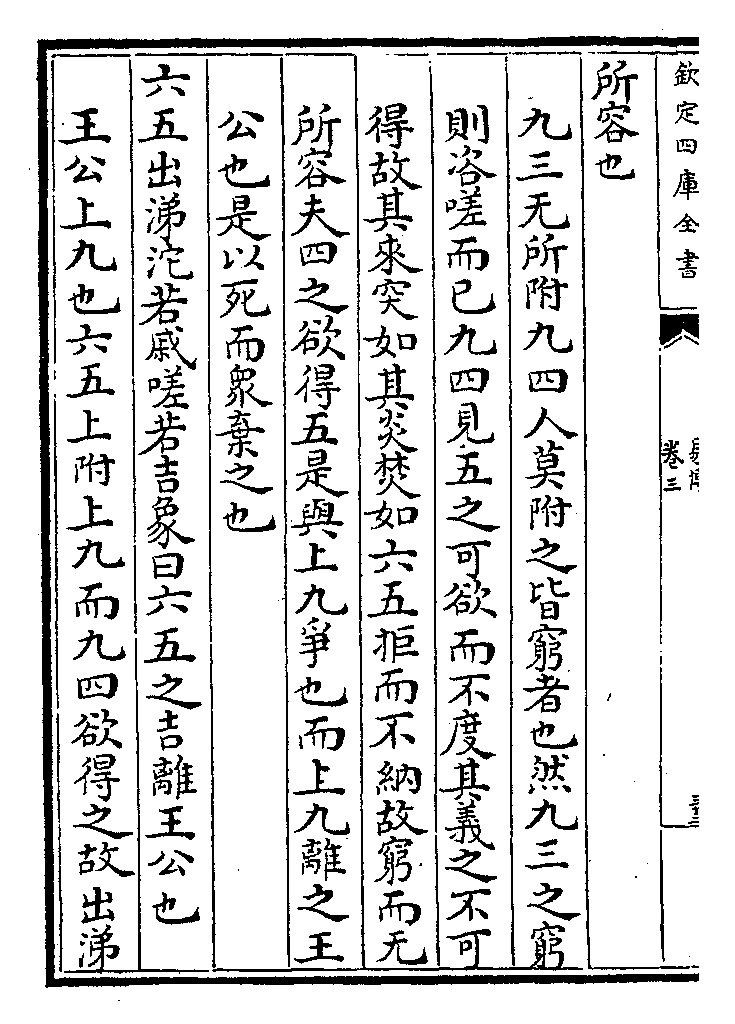 欽定四庫全書
卷三
所容也
九三无所附九四人莫附之皆窮者也然九三之窮
則咨嗟而已九四見五之可欲而不度其義之不可
得故其來突如其炎焚如六五拒而不納故窮而无
所容夫四之欲得五是與上九爭也而上九離之王
公也是以死而衆棄之也
六五出涕沱若戚嗟若吉象曰六五之吉離王公也
王公上九也六五上附上九而九四欲得之故出涕